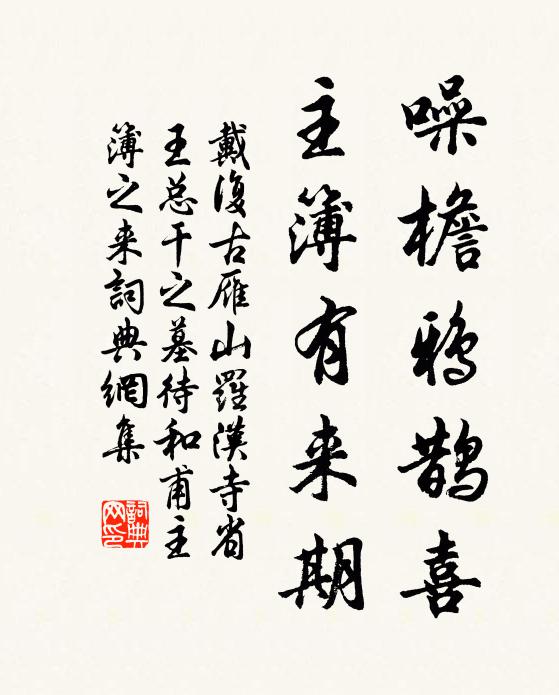 噪檐鴉鵲喜
主簿有来期
戴復古雁山羅漢寺省
王总干之墓待和甫主
簿之来詞典網集
詞典
网印